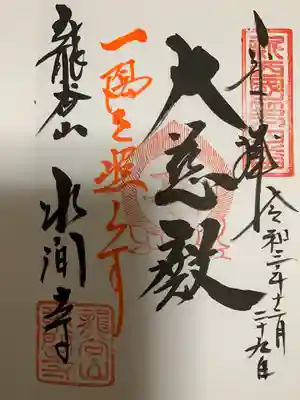 奉拝
令和二年十二月
二十九日
大慈殿
一隅を照らす
龍谷山 水間寺